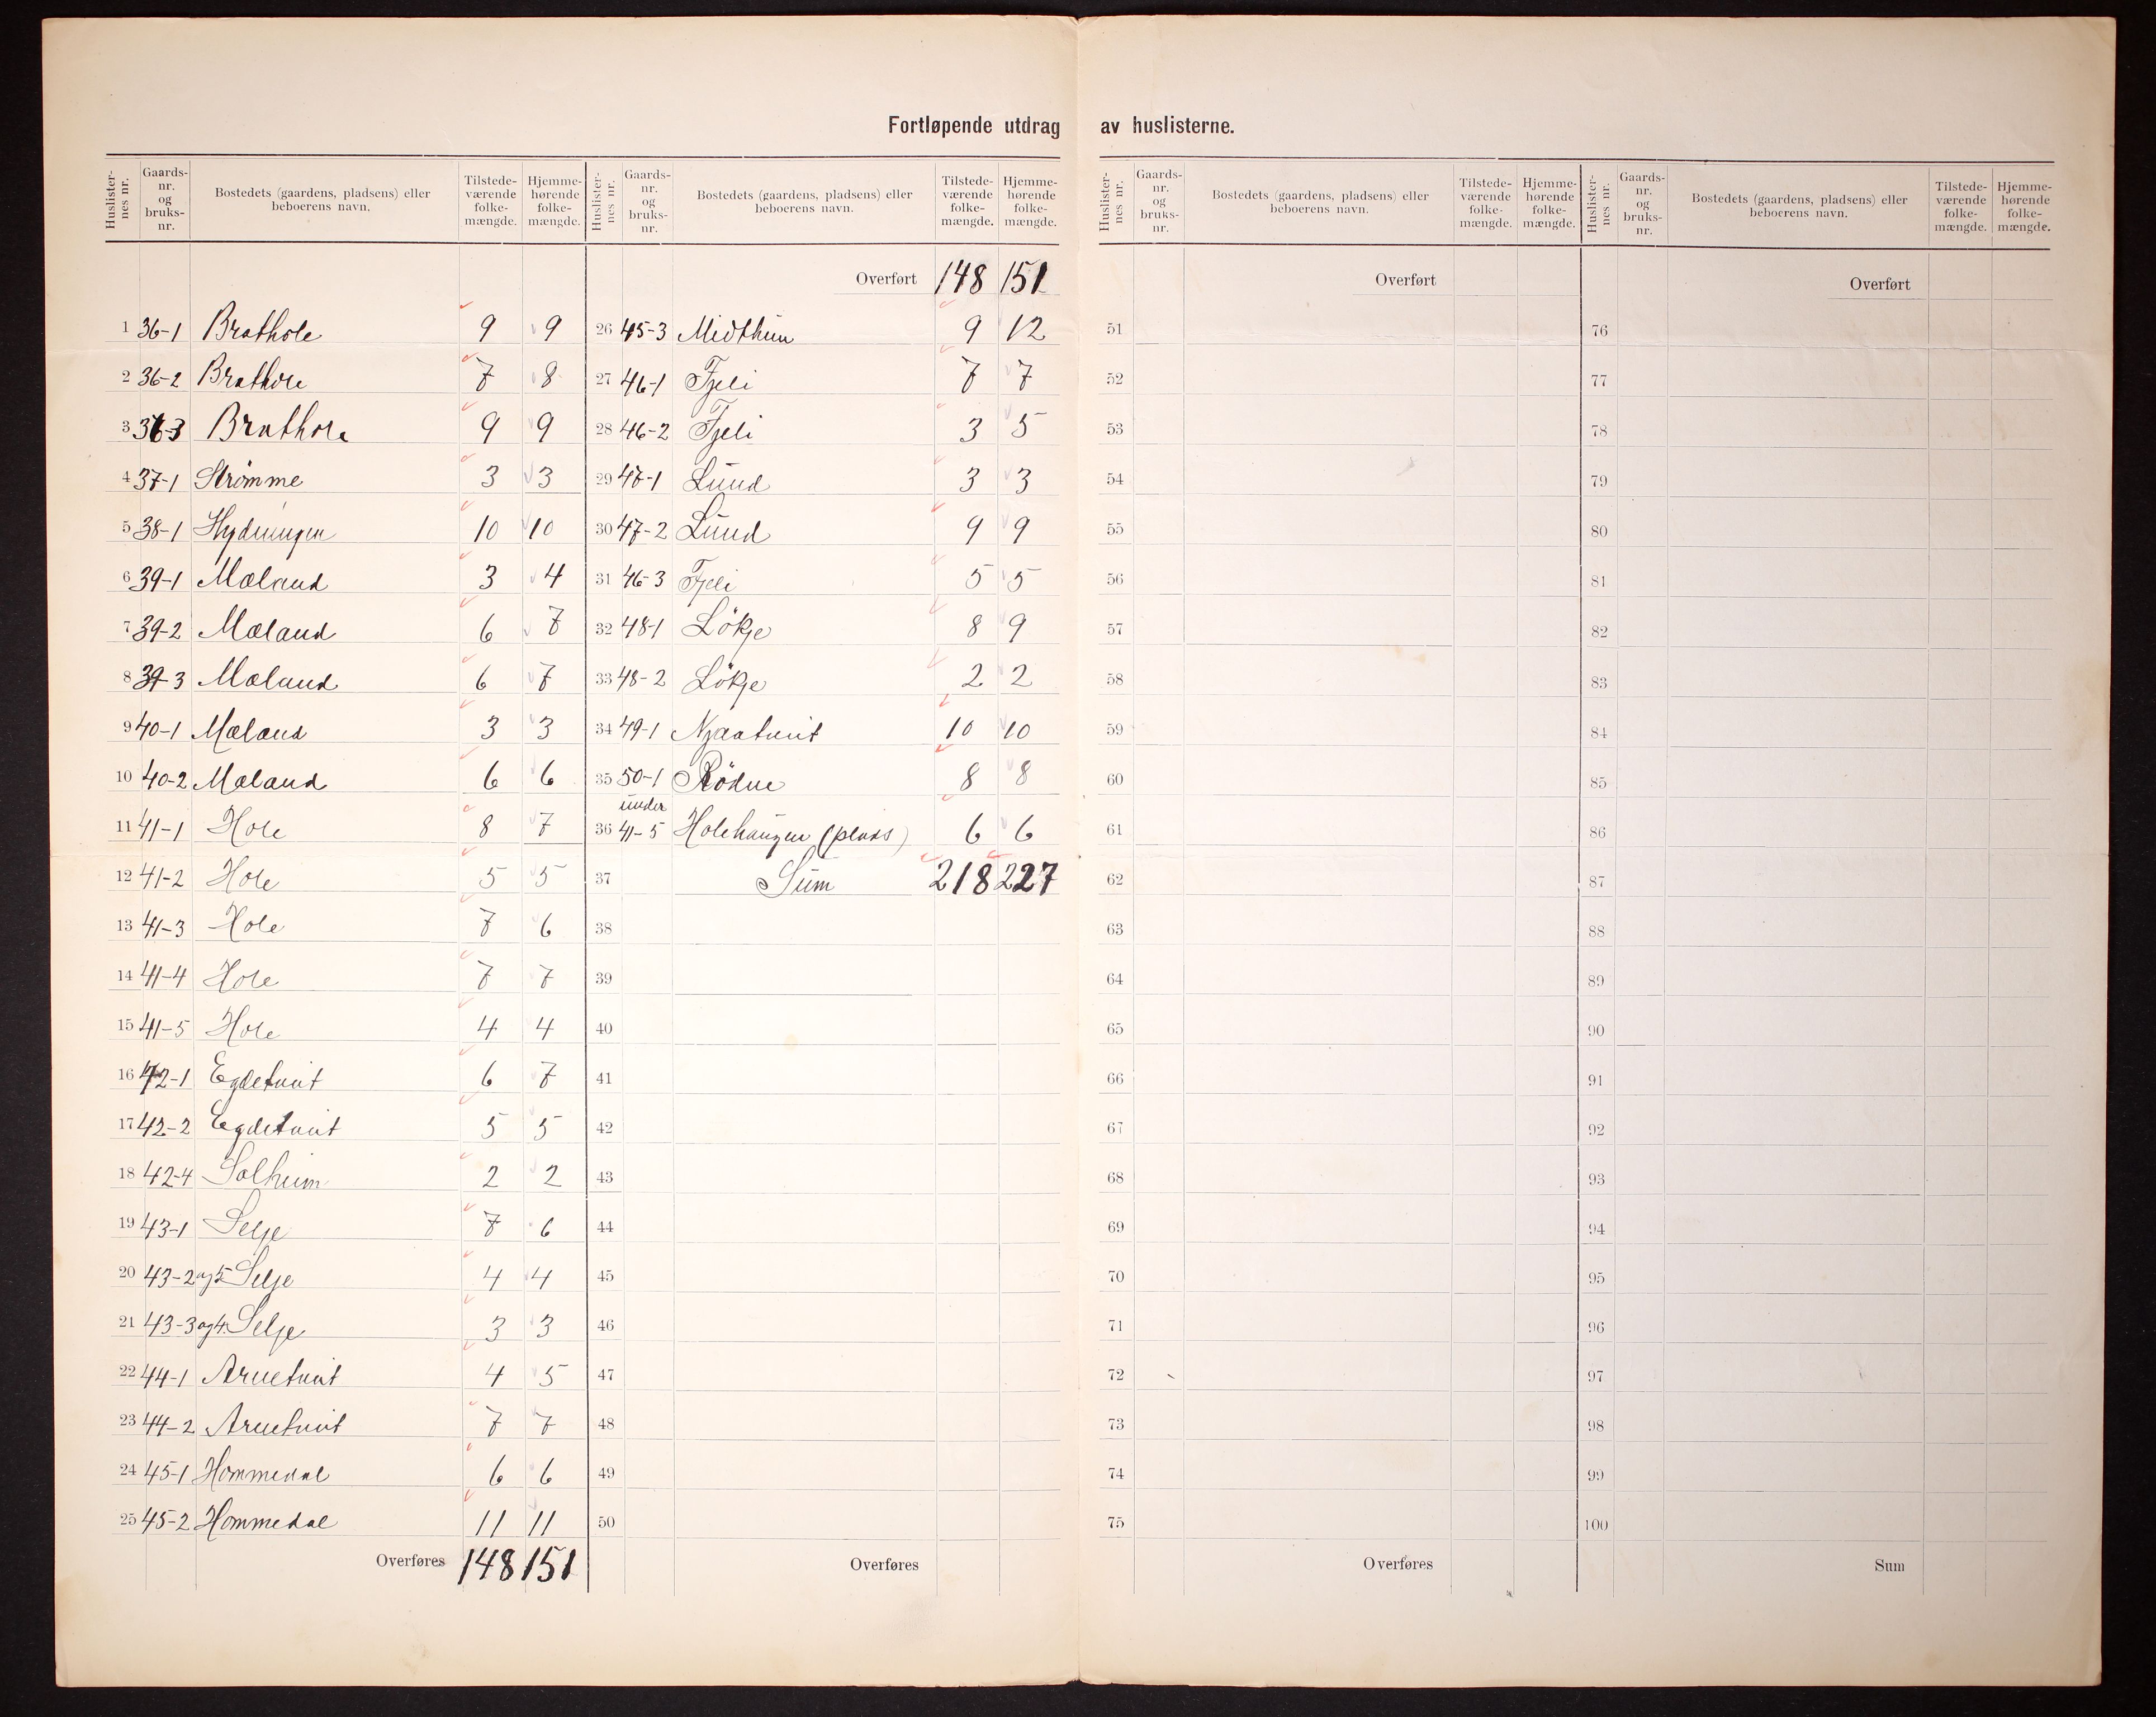 Fortløpende utdrag av huslisterne.
Huslister-nes nr. Gaards-nr. og bruks-nr. Bostedets (gaardens, pladsens) eller beboerens navn. Tilstede-værende folke-mængde. Hjemme-hørende folke-mængde.
1 36-1 Brathole 9 9
2 36-2 Brathole 7 8
3 36-3 Brathole 9 9
4 37-1 Strømme 3 3
5 38-1 10 10
6 39-1 Mæland 3 4
7 39-2 Mæland 6 7
8 39-3 Mæland 6 7
9 40-1 Mæland 3 3
10 40-2 Mæland 6 6
11 41-1 Hole 8 7
12 41-2 Hole 5 5
13 41-3 Hole 7 6
14 41-4 Hole 7 7
15 41-5 Hole 4 4
16 42-1 Egdetveit 6 7
17 42-2 Egdetveit 5 5
18 42-4 Solheim 2 2
19 43-1 Selje 7 6
20 43-2 og 5 Selje 4 4
21 43-3 og 4 Selje 3 3
22 44-1 Arnetveit 4 5
23 44-2 Arnetveit 7 7
24 45-1 Hommedal 6 6
25 45-2 Hommedal 11 11
Overføres 148 151
Huslister-nes nr. Gaards-nr. og bruks-nr. Bostedets (gaardens, pladsens) eller beboerens navn. Tilstede-værende folke-mængde. Hjemme-hørende folke-mængde.
Overført 148 151
26 45-3 Midthun 9 12
27 46-1 Fjeli 7 7
28 46-2 Fjeli 3 5
29 47-1 Lund 3 3
30 47-2 Lund 9 9
31 46-3 Fjeli 5 5
32 48-1 Lökje 8 9
33 48-2 Lökje 2 2
34 49-1 Njaatveit 10 10
35 50-1 Rödne 8 8
under
36 41-5 Holehaugen (plads) 6 6
37 Sum 218 227
38
39
40
41
42
43
44
45
46
47
48
49
50
Overføres
Huslister-nes nr. Gaards-nr. og bruks-nr. Bostedets (gaardens, pladsens) eller beboerens navn. Tilstede-værende folke-mængde. Hjemme-hørende folke-mængde.
Overført
51
52
53
54
55
56
57
58
59
60
61
62
63
64
65
66
67
68
69
70
71
72
73
74
75
Overføres
Huslister-nes nr. Gaards-nr. og bruks-nr. Bostedets (gaardens, pladsens) eller beboerens navn. Tilstede-værende folke-mængde. Hjemme-hørende folke-mængde.
Overført
76
77
78
79
80
81
82
83
84
85
86
87
88
89
90
91
92
93
94
95
96
97
98
99
100
Sum